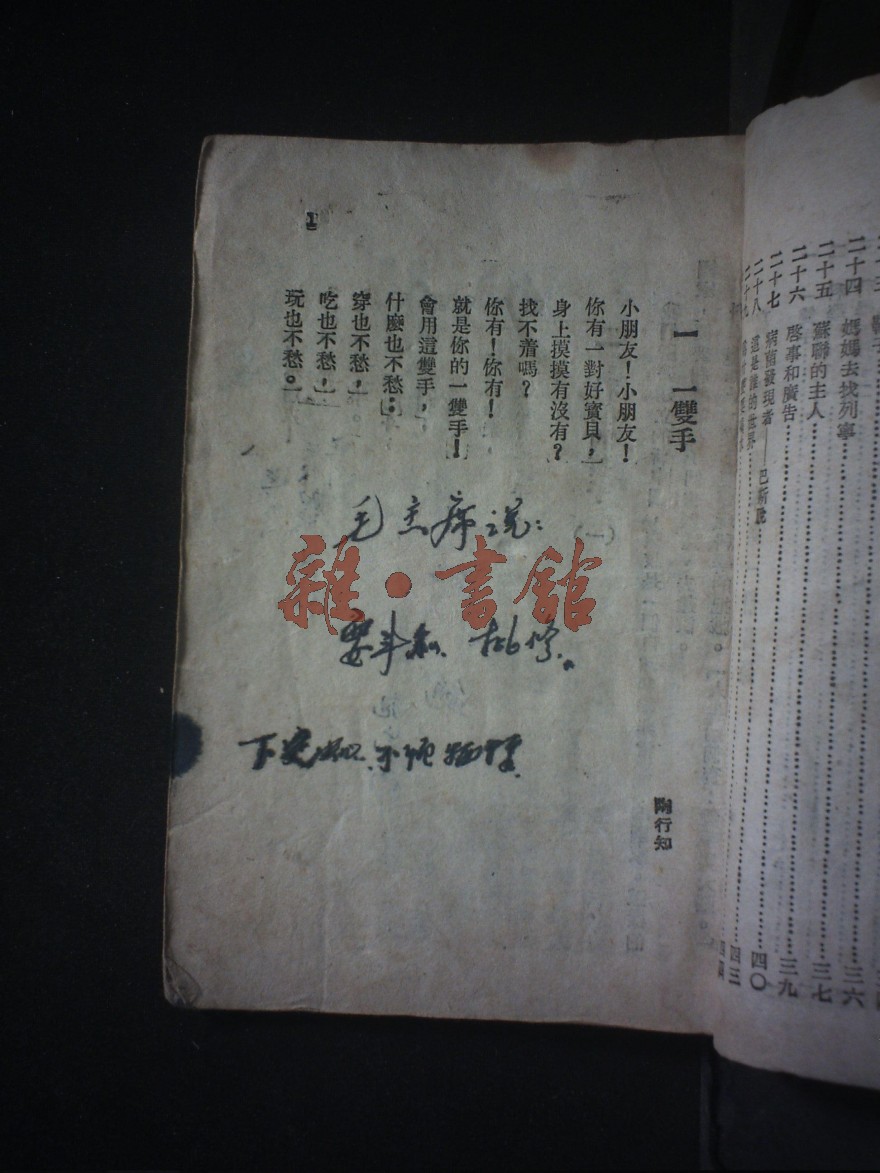 二十四 媽媽去找列寧……三六
二十五 蘇聯的主人……三七
二十六 啓事和廣告……三九
二十七 病菌發現者——巴斯脫……四〇
二十八 這是誰的世界……四三
二十九
一 一雙手
陶行知
小朋友！小朋友！
你有一對好寶貝，
身上摸摸有沒有？
找不着嗎？
你有！你有！
就是你的一雙手！
會用這雙手，
什麼也不愁：
穿也不愁，
吃也不愁，
玩也不愁。
1
毛主席说：
雜·書館
要斗私、批修。
下定决心.不怕牺牲.